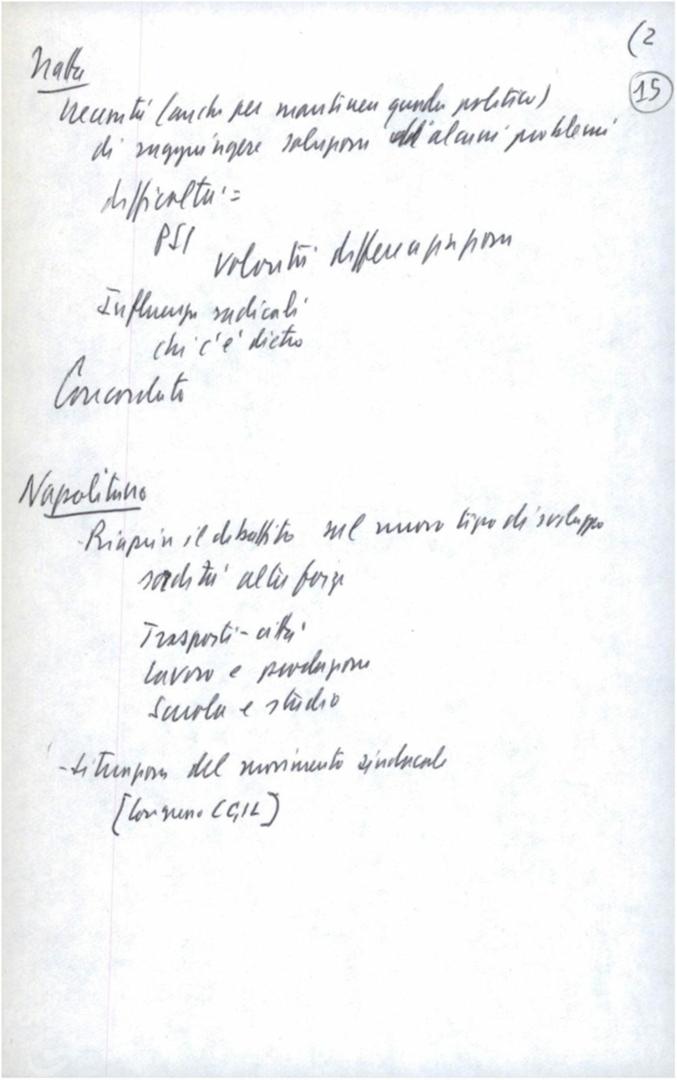 (2
15
Natta
Necessità (anche per mantenere quadro politico)
di raggiungere soluzione di alcuni problemi
difficoltà =
PSI
volontà differenziazione
Influenza radicali
chi c'è dietro
Concordato
Napolitano
- Riaprire il dibattito sul nuovo tipo di sviluppo
sordità altre forze
Trasporti - città
Lavoro e produzione
Scuola e studio
- Situazione del movimento sindacale
[Congresso CGIL]